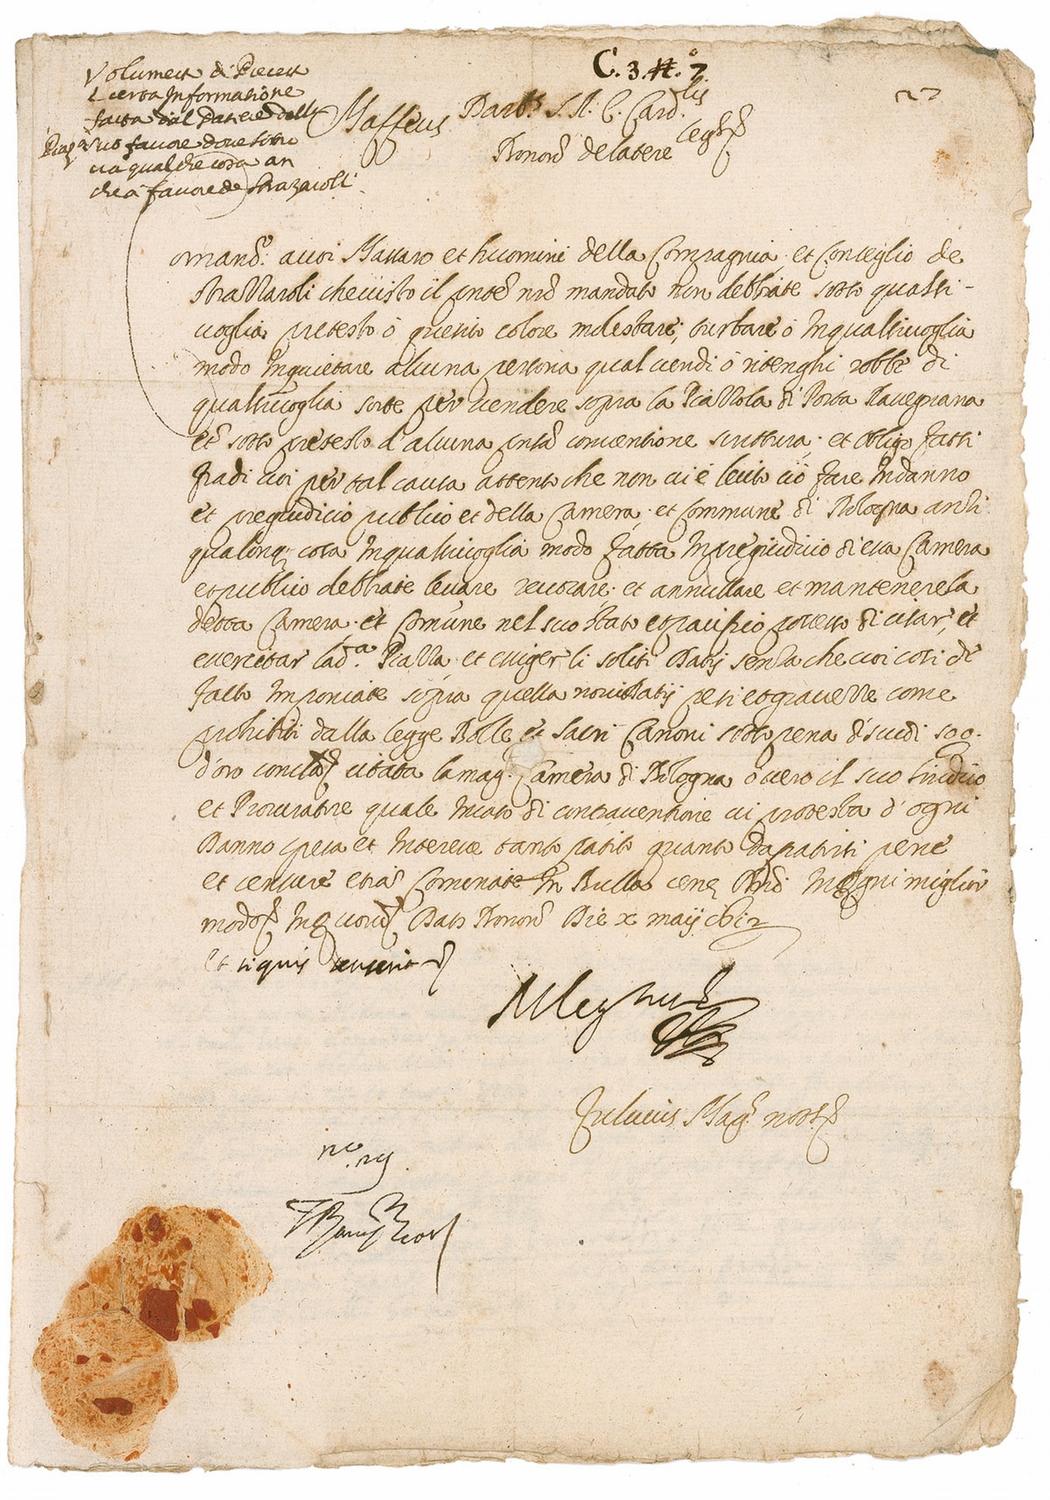 C. 3. #. 7.
27
Volume di
certa Informatione
fatta dal Datiero della
Piaz.ª in favore dove
ui a qualche cosa an
che a favore de Strazaioli
Maffeus Barb.s S. R. E. Card.lis
Bonon. de latere Leg.
Comand. a voi Massaro et huomini della Compagnia et Conseglio de
Strazzaroli che visto il pnte nro mandato non debbiate sotto qualsi-
voglia pretesto ò quesito colore molestare, turbare ò Inqualsivoglia
modo Inquietare alcuna persona qual vendi ò ritenghi robbe di
qualsivoglia sorte per vendere sopra la Piazzola di Porta Ravegnana
et sotto pretesto d'alcuna conventione scrittura et obligo fatti
fra di voi per tal causa attento che non vi è lecito ciò fare Indanno
et pregiudicio publico et della Camera et Commune di Bologna anzi
qualonq cosa Inqualsivoglia modo fatta Inpregiudicio di essa Camera
et publico debbiate levare revocare et annullare et mantenere la
detta Camera et Comune nel suo stato et pacifico possesso di usar, et
exercitar la d.ª Piazza et exiger li soliti Datij senza che voi così di
fatto Imponiate sopra quella novi datij pesi et gravezze come
prohibiti dalla legge Bolle et Sacri Canoni sotto pena di scudi 500.
d'oro citata la mag. Camera di Bologna overo il suo Sindico
et Procuratore quale Incaso di contraventione vi protesta d'ogni
Danno spesa et Interesse tanto patito quanto da patirsi pene
et censure Cominate In Bulla cene Dni Inogni miglior
modo Dat. Bonon. Die x maij 1612
Et siquis
Julius Mag. not.